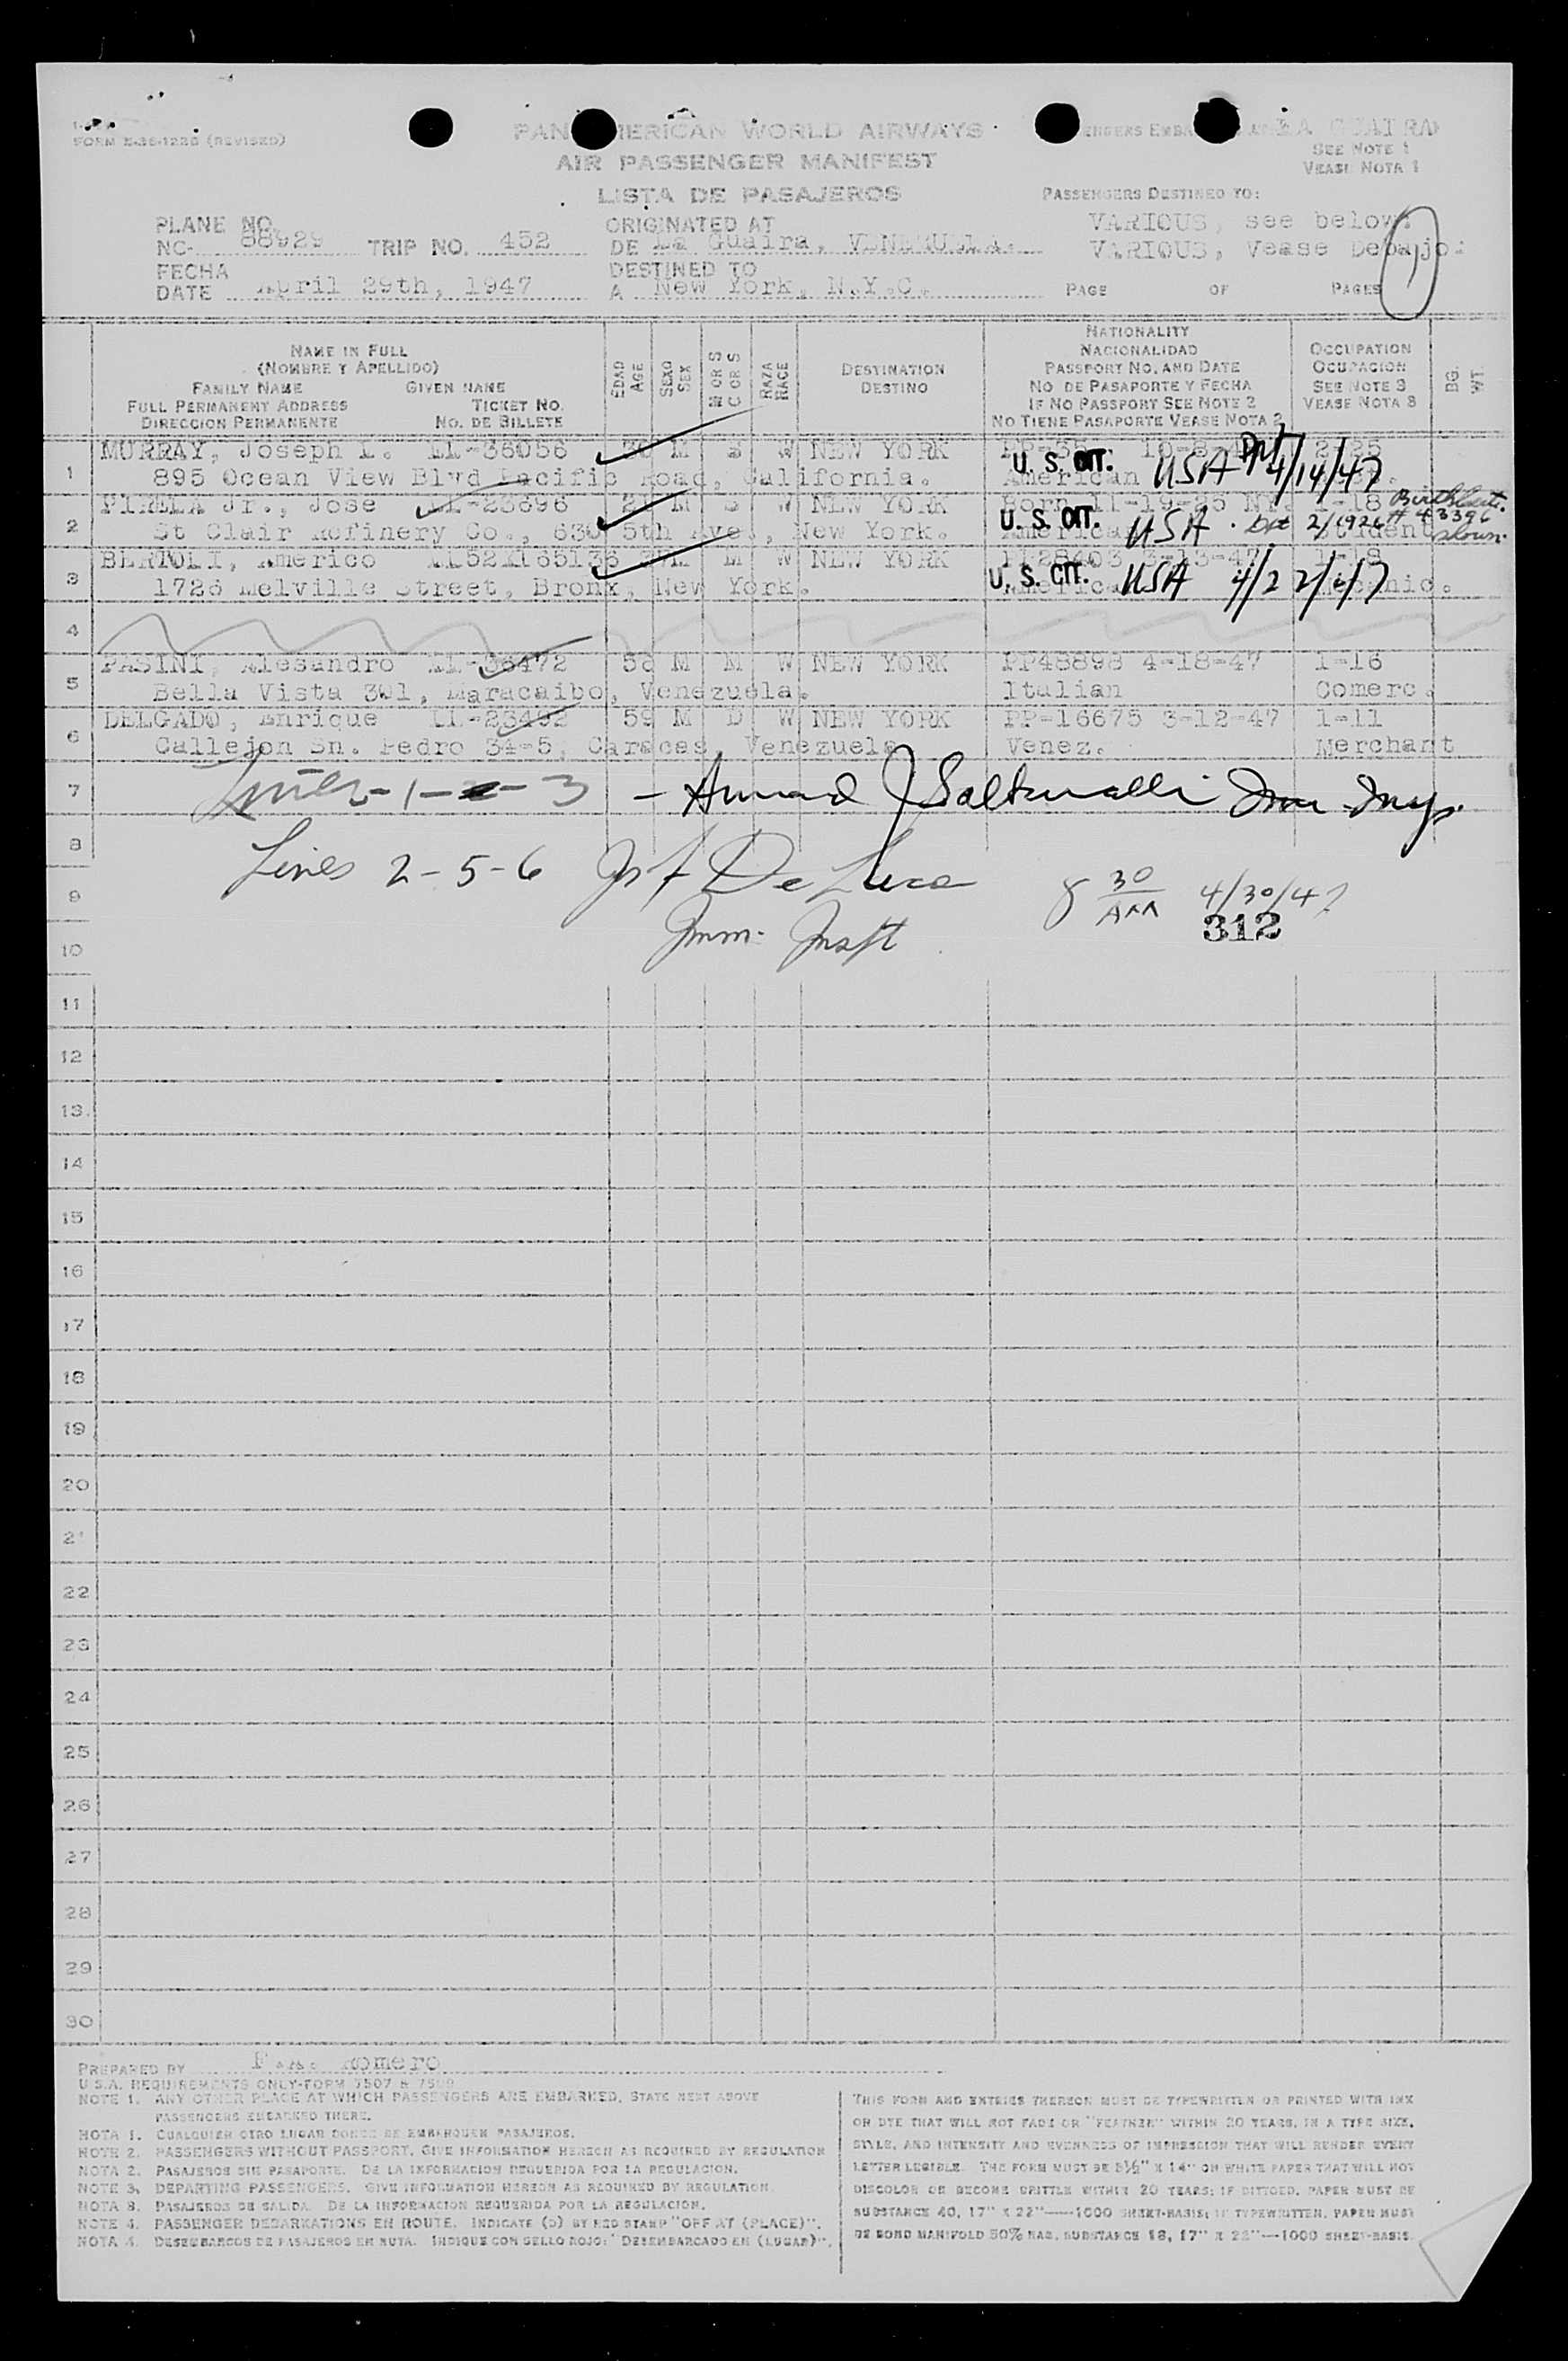 FORM 5-35-1226 (REVISED)
PAN AMERICAN WORLD AIRWAYS
AIR PASSENGER MANIFEST
LISTA DE PASAJEROS
LA GUAIRA
SEE NOTE 1
VEASE NOTA 1
PASSENGERS DESTINED TO:
VARIOUS, see below.
VARIOUS, Vease Debajo.
PLANE NO.
NC- 88929 TRIP NO. 452
ORIGINATED AT
DE La Guaira, VENEZUELA.
FECHA
DATE April 29th, 1947
DESTINED TO
A New York, N.Y.C.
PAGE OF PAGES
1
NAME IN FULL
(NOMBRE Y APELLIDO)
FAMILY NAME GIVEN NAME
FULL PERMANENT ADDRESS TICKET NO.
DIRECCION PERMANENTE NO. DE BILLETE
EDAD AGE
SEXO SEX
M OR S C OR S
RAZA RACE
DESTINATION
DESTINO
NATIONALITY
NACIONALIDAD
PASSPORT NO. AND DATE
NO. DE PASAPORTE Y FECHA
IF NO PASSPORT SEE NOTE 2
NO TIENE PASAPORTE VEASE NOTA 2
OCCUPATION
OCUPACION
SEE NOTE 3
VEASE NOTA 3
BG. WT.
1 MURRAY, Joseph L. LL-36056 30 M S W NEW YORK
895 Ocean View Blvd Pacific Road, California. American
U. S. CIT. USA 4/14/47
2 PIRELA Jr., Jose LL-23696 21 M S W NEW YORK Born 11-19-25 NY. 1-18
St Clair Refinery Co., 630 5th Ave., New York. American Student
U. S. CIT. USA 2/1926 Birth Cert. # 43396 shown.
3 BERTOLI, Americo M W NEW YORK PP28403 3-13-47 1-18
1726 Melville Street, Bronx, New York. American Mecanic.
U. S. CIT. USA 4/22/47
4
5 PASINI, Alesandro LL-36472 58 M M W NEW YORK PP48898 4-18-47 1-16
Bella Vista 301, Maracaibo, Venezuela. Italian Comerc.
6 DELGADO, Enrique LL-23492 59 M D W NEW YORK PP-16675 3-12-47 1-11
Callejon Sn. Pedro 34-5, Caracas, Venezuela Venez. Merchant
7 Lines-1-2-3 - J Imm Insp.
8 Lines 2-5-6 De Luca 8 30 AM 4/30/47
9 Imm. Inspt 312
10
11
12
13
14
15
16
17
18
19
20
21
22
23
24
25
26
27
28
29
30
PREPARED BY Romero
U.S.A. REQUIREMENTS ONLY-FORM 7507 & 7509
NOTE 1. ANY OTHER PLACE AT WHICH PASSENGERS ARE EMBARKED, STATE NEXT ABOVE
PASSENGERS EMBARKED THERE.
NOTA 1. CUALQUIER OTRO LUGAR DONDE SE EMBARQUEN PASAJEROS.
NOTE 2. PASSENGERS WITHOUT PASSPORT. GIVE INFORMATION HEREON AS REQUIRED BY REGULATION
NOTA 2. PASAJEROS SIN PASAPORTE. DE LA INFORMACION REQUERIDA POR LA REGULACION.
NOTE 3. DEPARTING PASSENGERS. GIVE INFORMATION HEREON AS REQUIRED BY REGULATION.
NOTA 3. PASAJEROS DE SALIDA. DE LA INFORMACION REQUERIDA POR LA REGULACION.
NOTE 4. PASSENGER DEBARKATIONS EN ROUTE. INDICATE (D) BY RED STAMP "OFF AT (PLACE)".
NOTA 4. DESEMBARCOS DE PASAJEROS EN RUTA. INDIQUE CON SELLO ROJO: "DESEMBARCADO EN (LUGAR)".
THIS FORM AND ENTRIES THEREON MUST BE TYPEWRITTEN OR PRINTED WITH INK
OR DYE THAT WILL NOT FADE OR "FEATHER" WITHIN 20 YEARS, IN A TYPE SIZE,
STYLE, AND INTENSITY AND EVENNESS OF IMPRESSION THAT WILL RENDER EVERY
LETTER LEGIBLE. THE FORM MUST BE 8½" X 14" ON WHITE PAPER THAT WILL NOT
DISCOLOR OR BECOME BRITTLE WITHIN 20 YEARS; IF DITTOED, PAPER MUST BE
SUBSTANCE 40, 17" X 22"—1000 SHEET-BASIS; IF TYPEWRITTEN, PAPER MUST
BE BOND MANIFOLD 50% RAG, SUBSTANCE 18, 17" X 22"—1000 SHEET-BASIS.